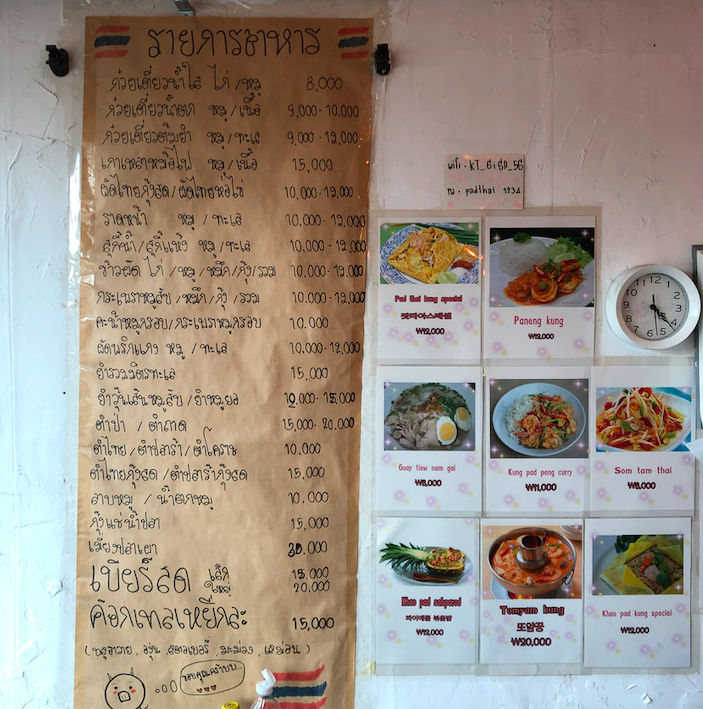 รายการอาหาร
ก๋วยเตี๋ยวน้ำใส ไก่/หมู 8,000
ก๋วยเตี๋ยวน้ำตก หมู/เนื้อ 9,000-10.000
ก๋วยเตี๋ยวต้มยำ หมู/ทะเล 9,000-12,000
เกาเหลาหม้อไฟ หมู/เนื้อ 15,000
ผัดไทยกุ้งสด/ผัดไทยห่อไข่ 10,000-12,000
ราดหน้า หมู/ทะเล 10,000-12,000
สุกี้น้ำ/สุกี้แห้ง หมู/ทะเล 10.000-12,000
ข้าวผัด ไก่/หมู/หมึก/กุ้ง/รวม 10,000-12,000
กระเพราหมูสับ/หมึก/กุ้ง/รวม 10,000-12,000
คะน้าหมูกรอบ/กระเพราหมูกรอบ 10.000
ผัดพริกแกง หมู/ทะเล 10.000-12,000
ยำรวมมิตรทะเล 15,000
ยำวุ้นเส้นหมูสับ/ยำหมูยอ 12,000-15,000
ตำป่า/ตำถาด 15,000-20.000
ตำไทย/ตำปลาร้า/ตำโคราช 10,000
ตำไทยกุ้งสด/ตำปลาร้ากุ้งสด 15,000
ลาบหมู/น้ำตกหมู 10.000
กุ้งแช่น้ำปลา 15,000
เมี่ยงปลาเผา 30.000
เบียร์สด เล็ก 15.000
ใหญ่ 20.000
ค๊อกเทลเหยือกละ 15,000
ขอบคุณคร้าบบ..
wifi - KT_GiGA_5G
padthai 1234
Pad thai kung special
팟타이스페셜
₩12,000
Paneng kung
₩12,000
Guay tiew nam gai
₩8,000
Kung pad pong curry
₩11,000
Som tam thai
₩8,000
Khao pad sabparod
파이애플 볶음밥
₩12,000
Tomyam kung
또얌꿍
₩20,000
Khao pad kung special
₩12,000
12 1 2 3 4 5 6 7 8 9 10 11